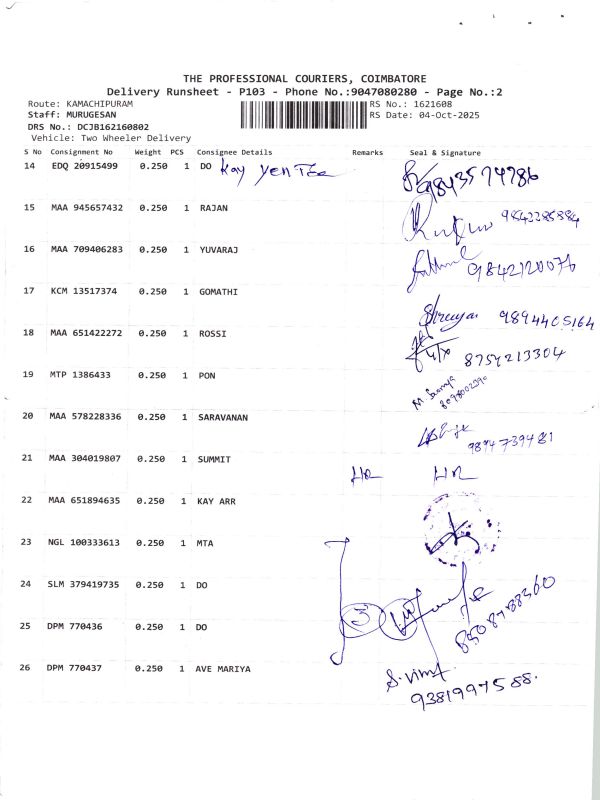 THE PROFESSIONAL COURIERS, COIMBATORE
Delivery Runsheet - P103 - Phone No.:9047080280 - Page No.:2
Route: KAMACHIPURAM
RS No.: 1621608
Staff: MURUGESAN
RS Date: 04-Oct-2025
DRS No.: DCJB162160802
Vehicle: Two Wheeler Delivery
S No Consignment No Weight PCS Consignee Details Remarks Seal & Signature
14 EDQ 20915499 0.250 1 DO Kay yen Tee 9843574786
15 MAA 945657432 0.250 1 RAJAN 9842285884
16 MAA 709406283 0.250 1 YUVARAJ 9842120076
17 KCM 13517374 0.250 1 GOMATHI 9894405164
18 MAA 651422272 0.250 1 ROSSI 8754213304
19 MTP 1386433 0.250 1 PON
20 MAA 578228336 0.250 1 SARAVANAN 9894739481
21 MAA 304019807 0.250 1 SUMMIT
22 MAA 651894635 0.250 1 KAY ARR
23 NGL 100333613 0.250 1 MTA
24 SLM 379419735 0.250 1 DO
25 DPM 770436 0.250 1 DO 3
26 DPM 770437 0.250 1 AVE MARIYA
9381997588.